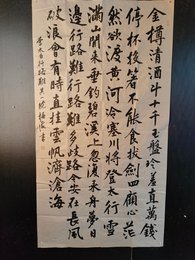 金樽清酒斗十千玉盤珍羞直萬錢
停杯投箸不能食拔劍四顧心茫
然欲渡黃河冰塞川將登太行雪
滿山閒來垂釣碧溪上忽復乘舟夢日
邊行路難行路難多歧路今安在長風
破浪會有時直挂雲帆濟滄海
李太白行路難 書